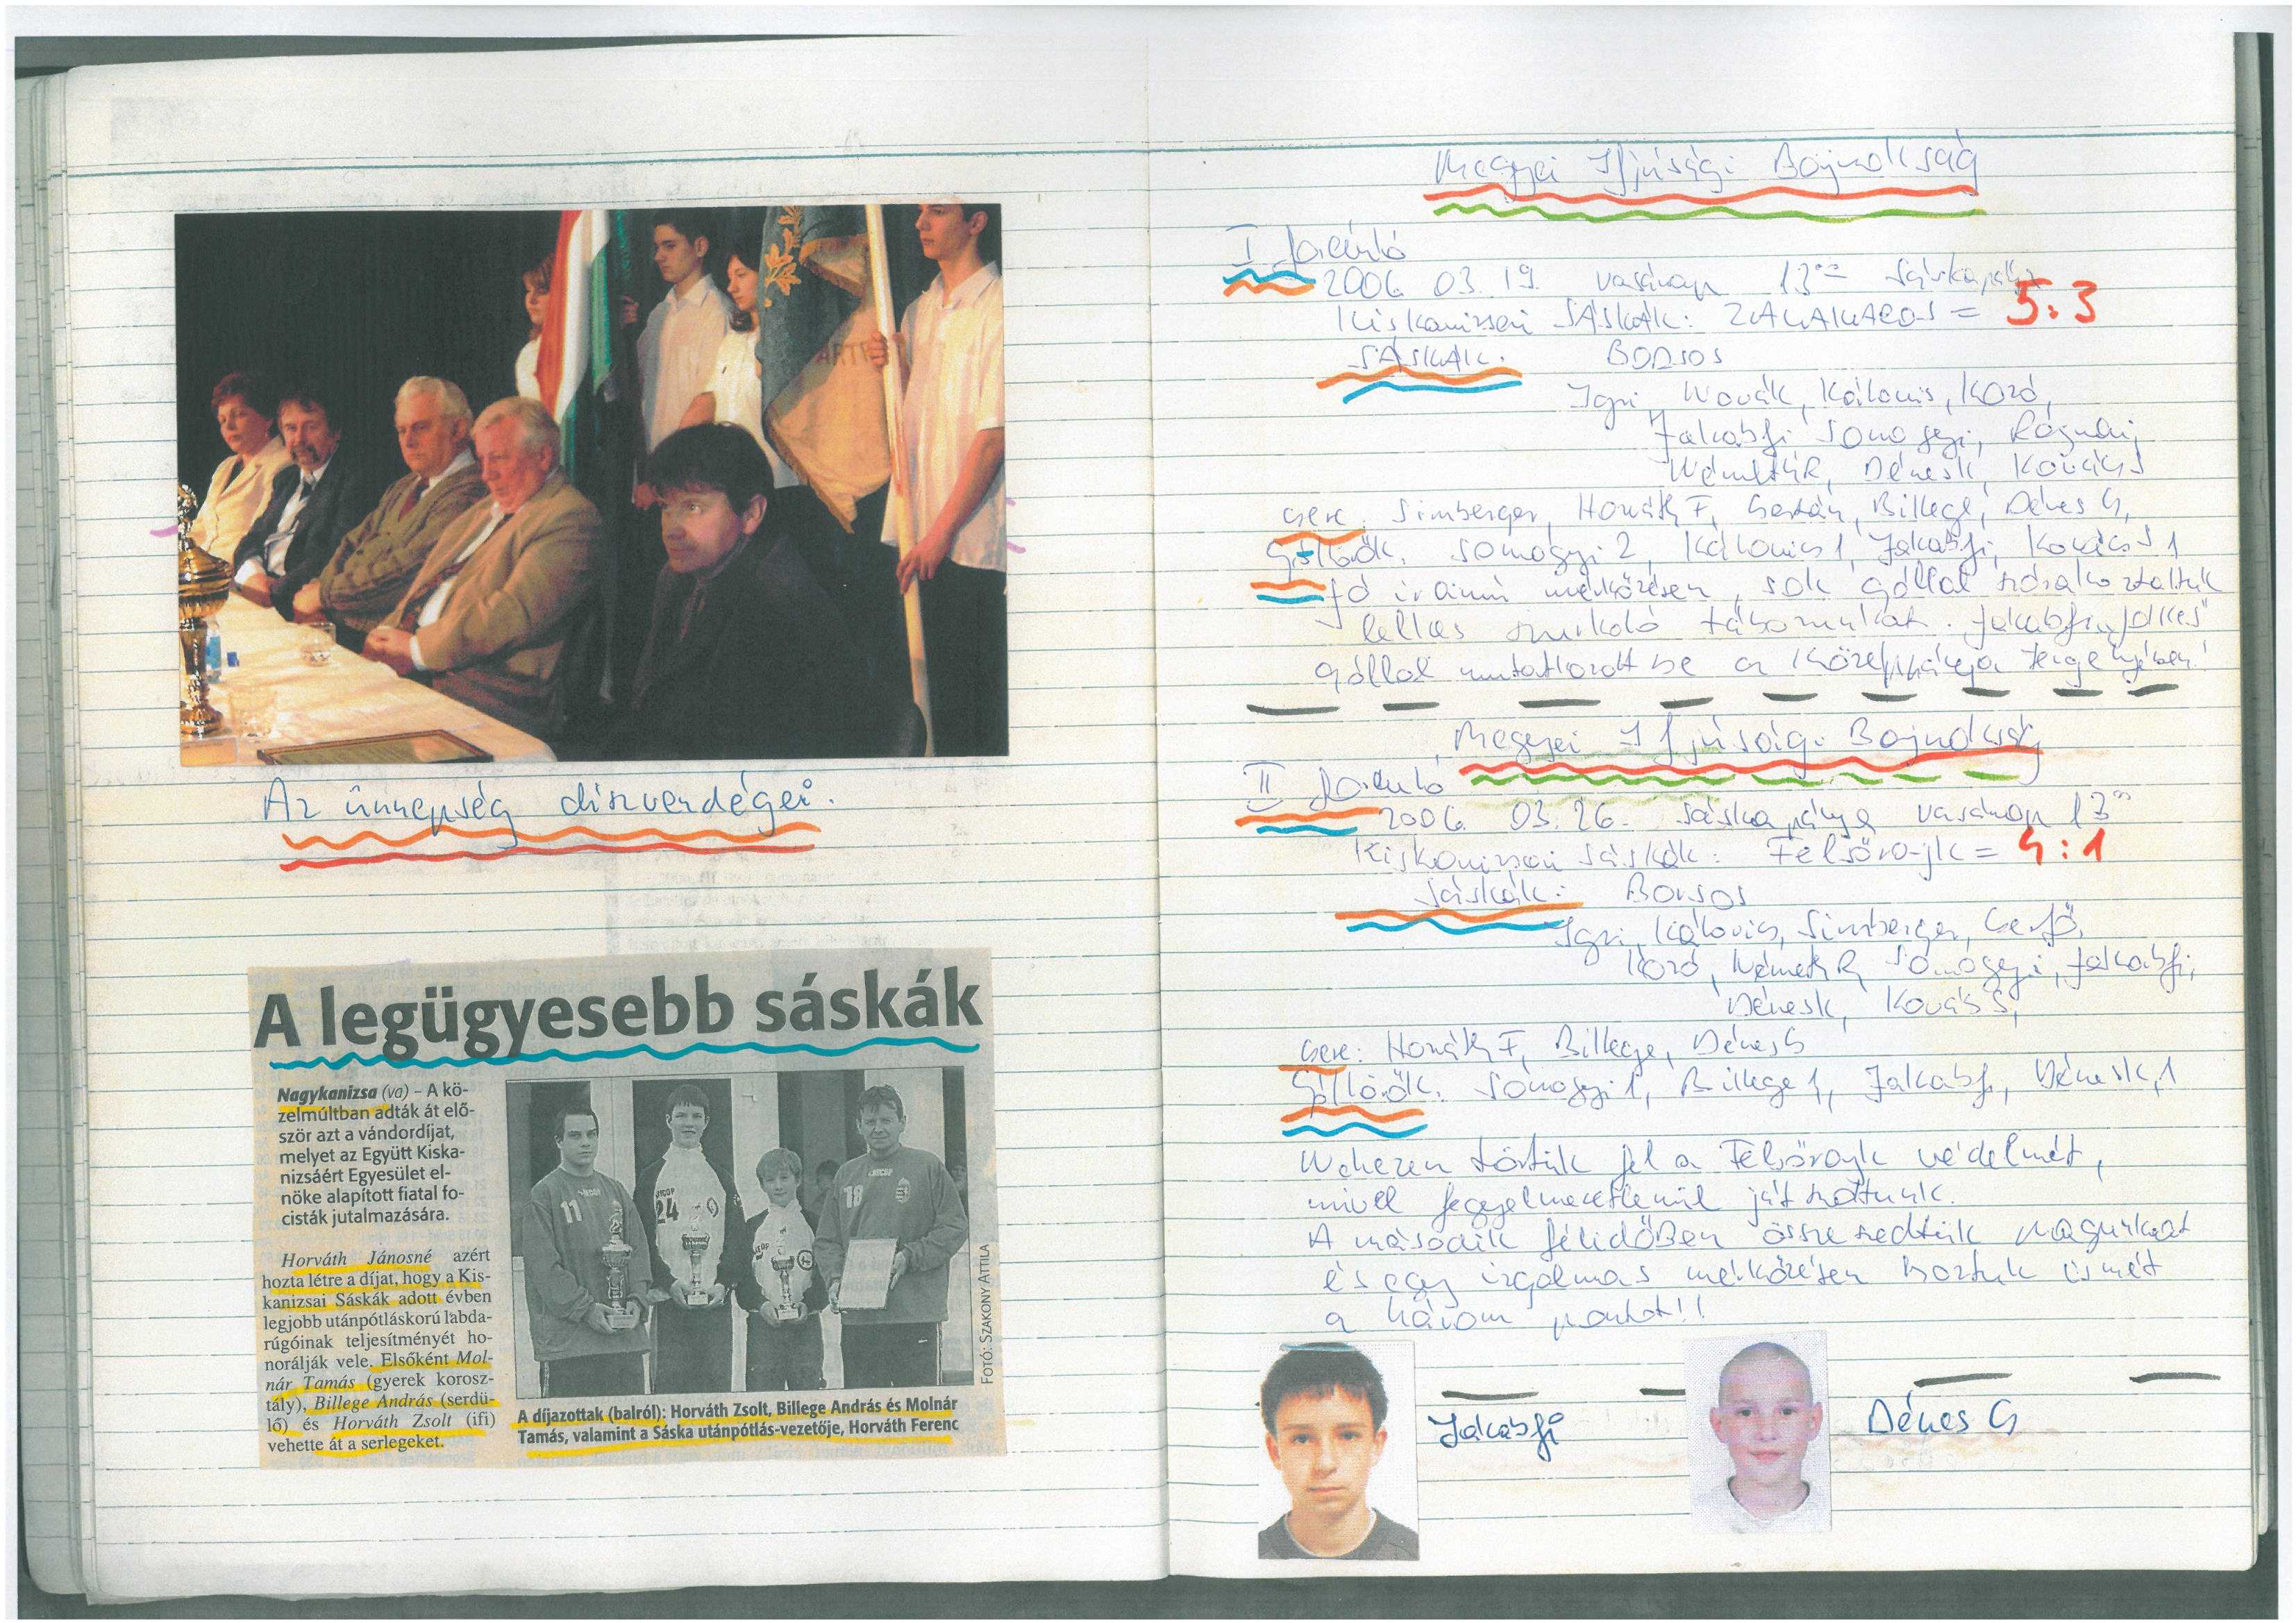 Az ünnepség díszvendégei.
A legügyesebb sáskák
Nagykanizsa (va) – A kö-
zelmúltban adták át elő-
ször azt a vándordíjat,
melyet az Együtt Kiska-
nizsáért Egyesület el-
nöke alapított fiatal fo-
cisták jutalmazására.
Horváth Jánosné azért
hozta létre a díjat, hogy a Kis-
kanizsai Sáskák adott évben
legjobb utánpótláskorú labda-
rúgóinak teljesítményét ho-
norálják vele. Elsőként Mol-
nár Tamás (gyerek korosz-
tály), Billege András (serdü-
lő) és Horváth Zsolt (ifi)
vehette át a serlegeket.
11
24
18
FOTÓ: SZAKONY ATTILA
A díjazottak (balról): Horváth Zsolt, Billege András és Molnár
Tamás, valamint a Sáska utánpótlás-vezetője, Horváth Ferenc
Megyei Ifjúsági Bajnokság
I forduló
2006. 03. 19. vasárnap 13°° Sáskapálya
Kiskanizsai SÁSKÁK: ZALAKAROS = 5:3
SÁSKÁK: BORSOS
Igri, Novák, Kálovics, Kozó,
Jakabfi, Somogyi,
Németh R, Dénes K, Kovács S
csere: Simberger, Horváth F, Billege, Dénes G,
Góllövők: Somogyi 2, Kálovics 1, Jakabfi, Kovács S 1
Jó iramú mérkőzésen, sok góllal szórakoztattuk
lelkes szurkoló táborunkat. Jakabfi
góllal mutatkozott be a középpálya tengelyében!
Megyei Ifjúsági Bajnokság
II forduló
2006. 03. 26. Sáska pálya vasárnap 13°°
Kiskanizsai Sáskák: Felsőrajk = 4:1
Sáskák: Borsos
Igri, Kálovics, Simberger, Cserfő,
Kozó, Németh R, Somogyi, Jakabfi,
Dénes K, Kovács S,
csere: Horváth F, Billege, Dénes G
Góllövők: Somogyi 1, Billege 1, Jakabfi, Dénes K, 1
Nehezen törtük fel a Felsőrajk védelmét,
mivel fegyelmezetlenül játszottunk.
A második félidőben összeszedtük magunkat
és egy izgalmas mérkőzésen hoztuk ismét
a három pontot!!
Jakabfi
Dénes G